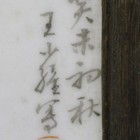 癸未初秋
王少維寫